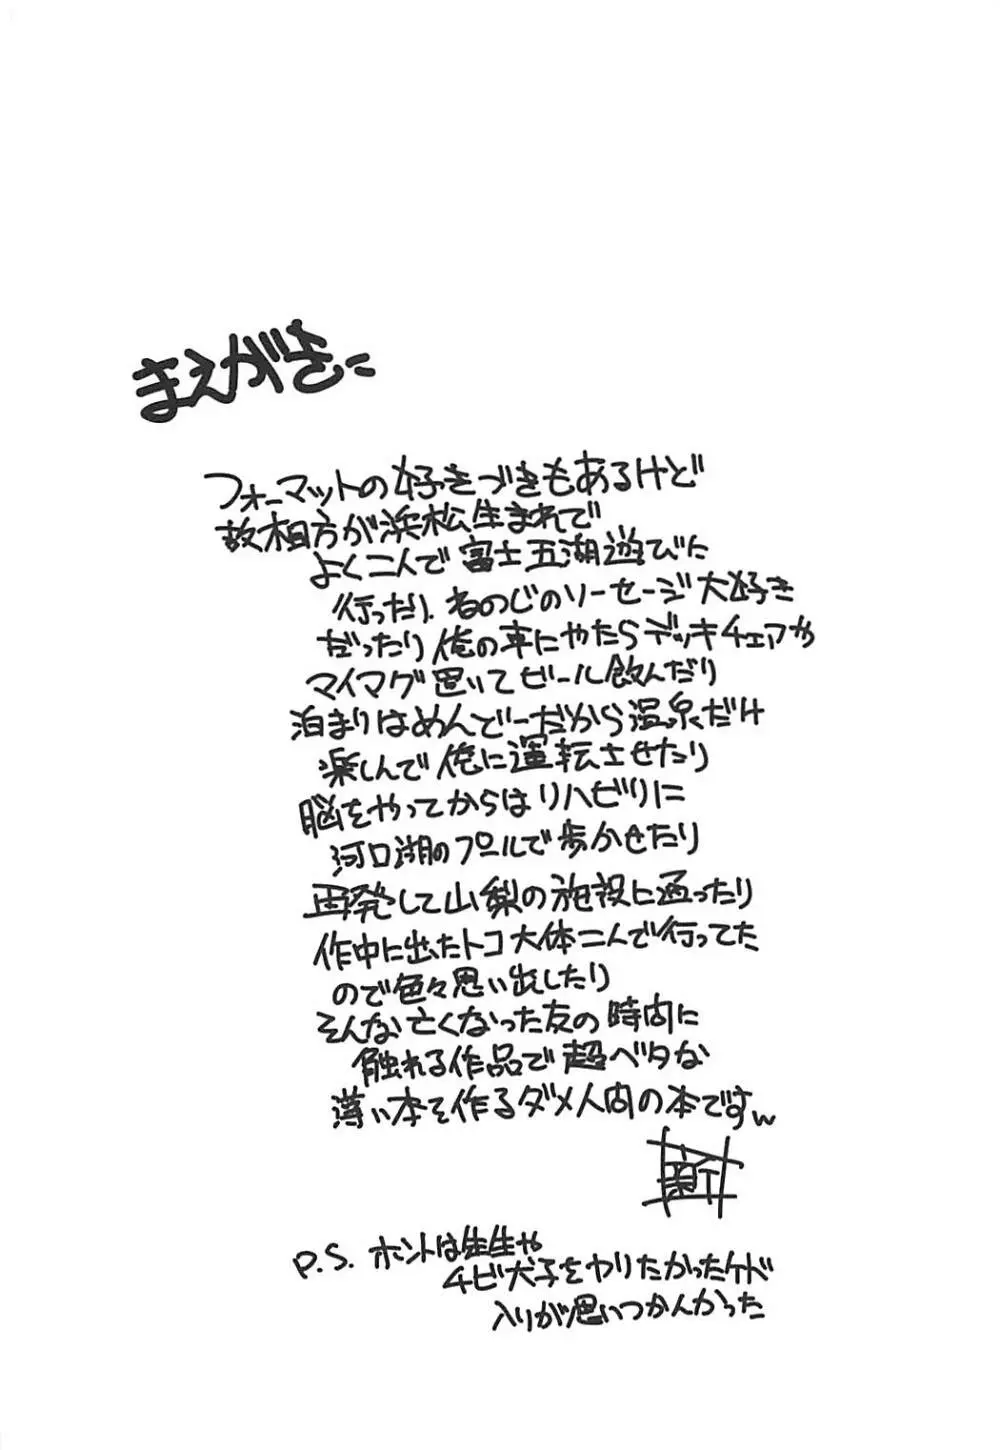 まえがきに
フォーマットの好きづきもあるけど
故相方が浜松生まれで
よく二人で富士五湖遊びに
行ったり、
のソーセージ大好き
だったり俺の車にやたらデッキチェアや
マイマグ置いてビール飲んだり
泊まりはめんでーだから温泉だけ
楽しんで俺に運転させたり
脳をやってからはリハビリに
河口湖のプールで歩かせたり
再発して山梨の施設に通ったり
作中に出たトコ大体二人で行ってた
ので色々思い出したり
そんな亡くなった友の時間に
触れる作品で超ベタな
薄い本を作るダメ人間の本ですw
P.S. ホントは先生や
チビ犬子をヤリたかったケド
入りが思いつかんかった